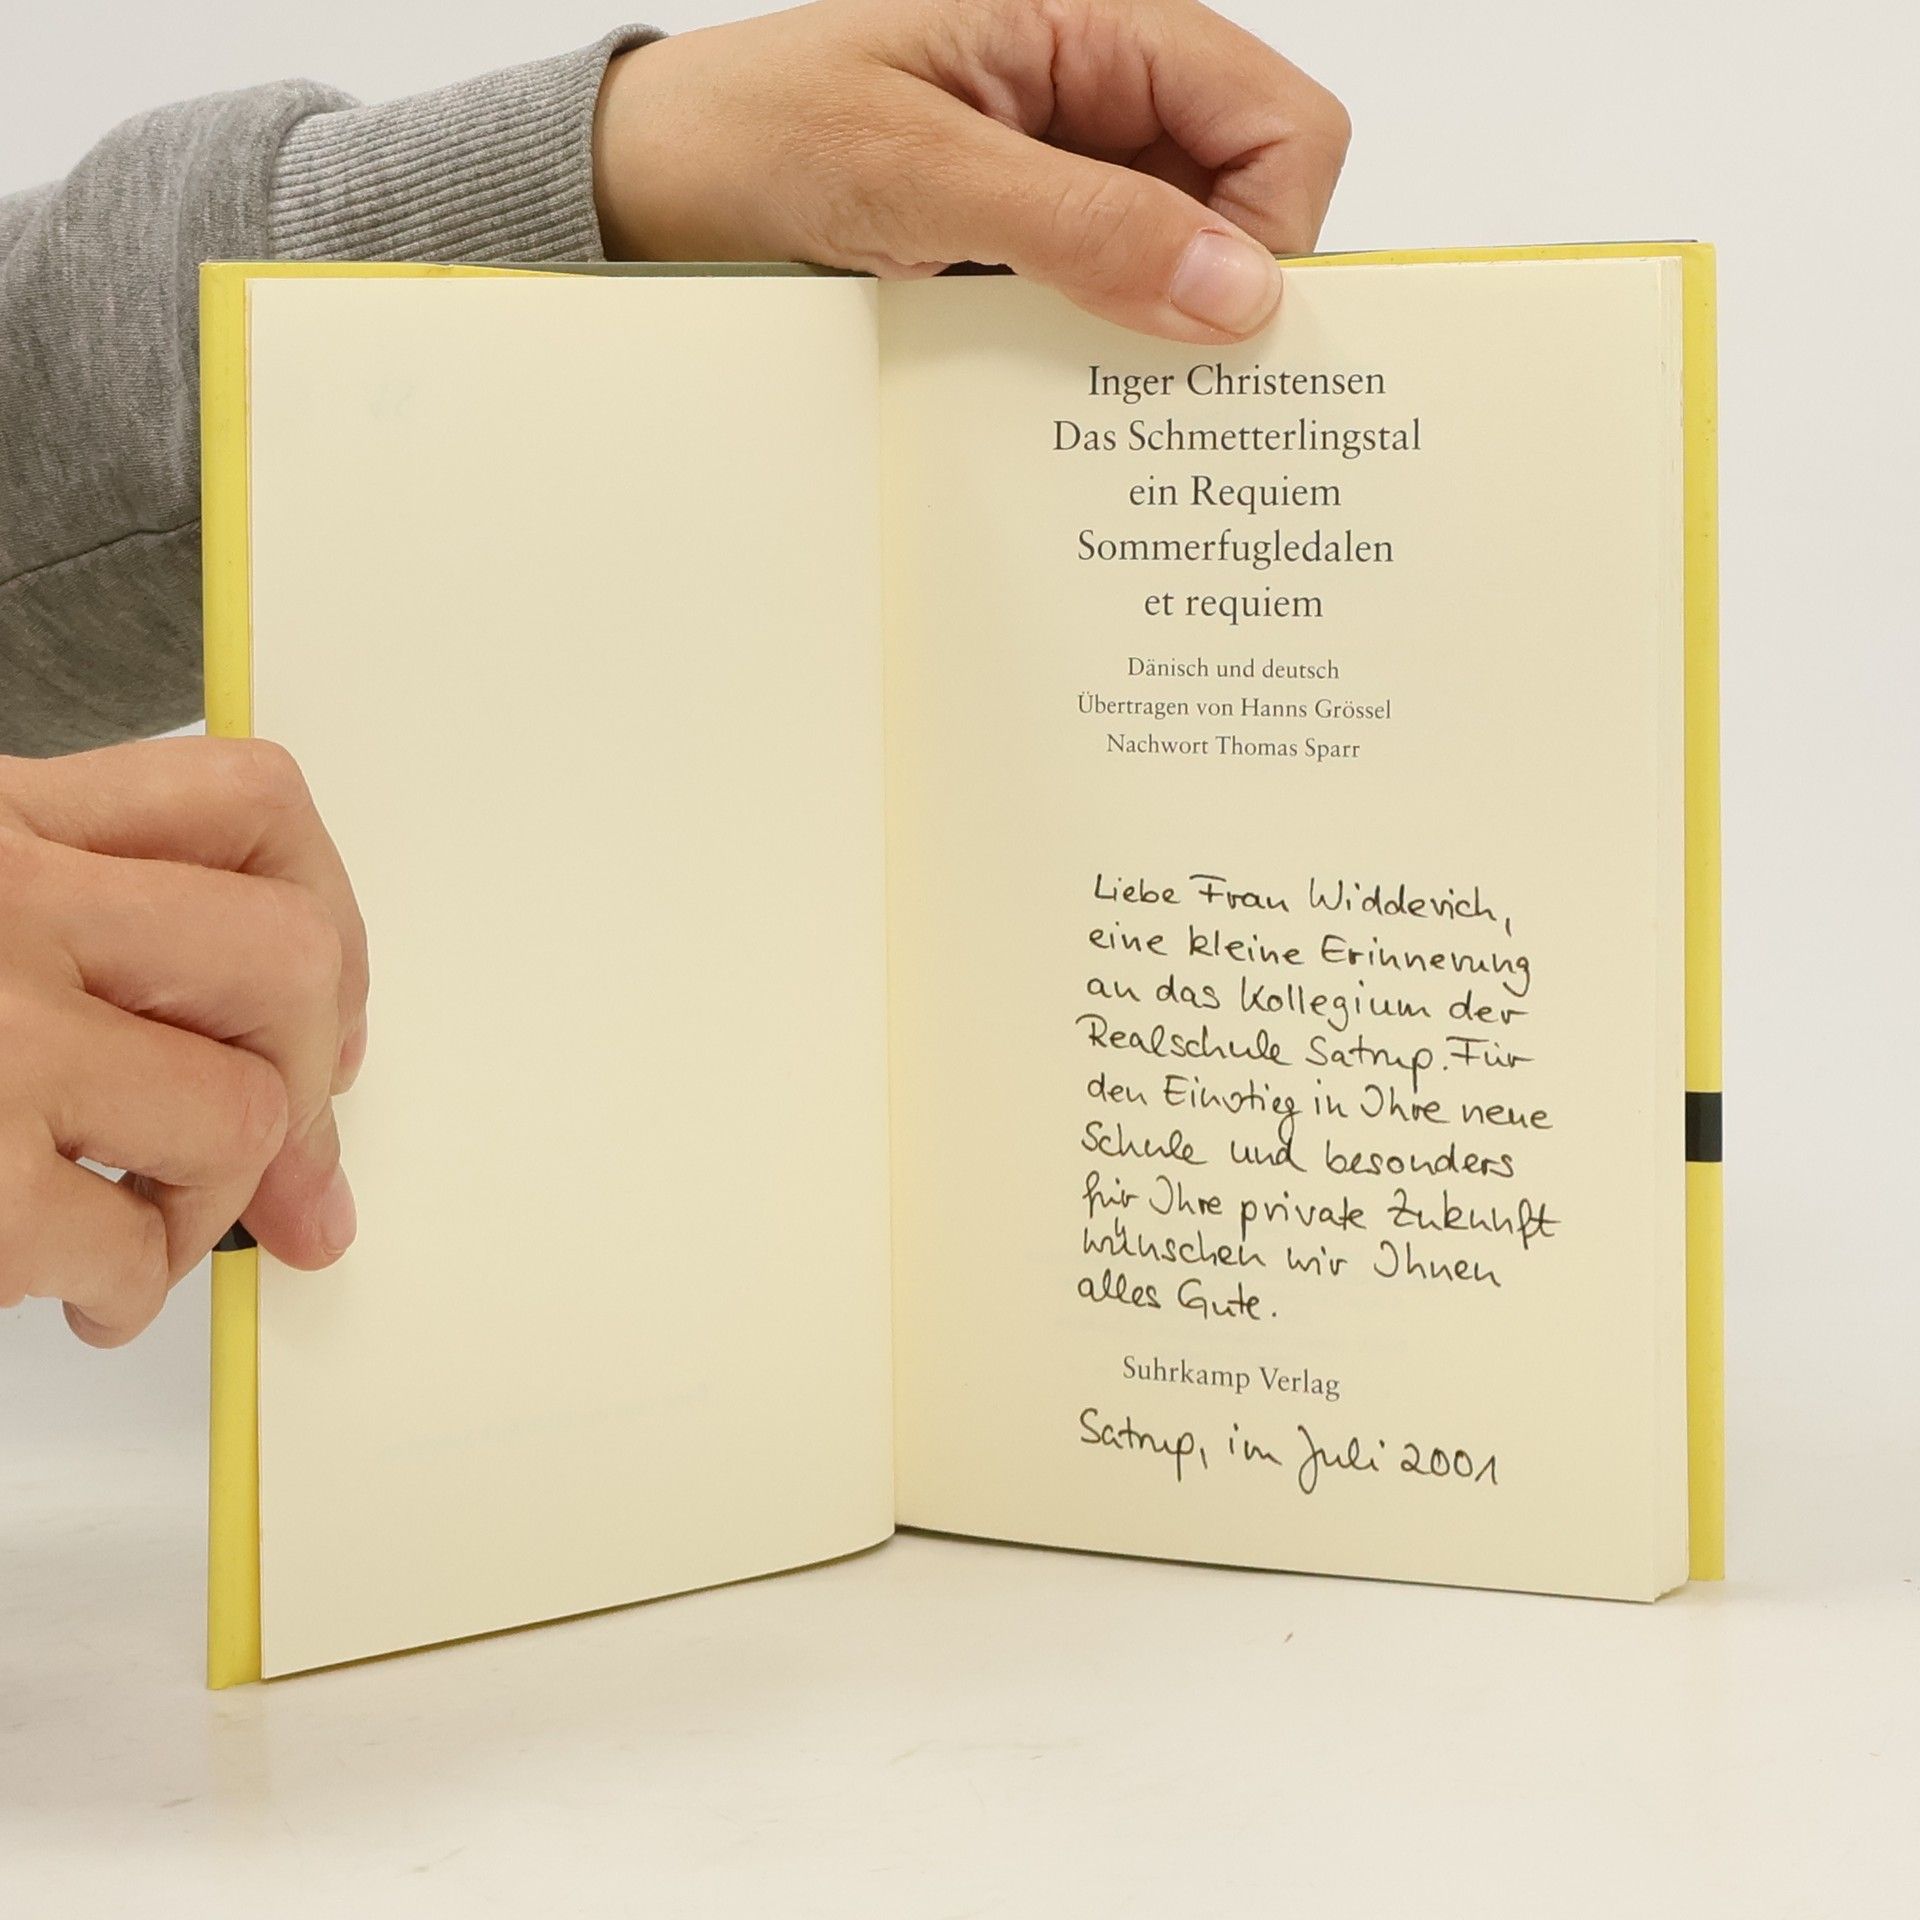 Inger Christensen
Das Schmetterlingstal
ein Requiem
Sommerfugledalen
et requiem
Dänisch und deutsch
Übertragen von Hanns Grössel
Nachwort Thomas Sparr
Liebe Frau Widderich,
eine kleine Erinnerung
an das Kollegium der
Realschule Satrup. Für
den Einstieg in Ihre neue
Schule und besonders
für Ihre private Zukunft
wünschen wir Ihnen
alles Gute.
Suhrkamp Verlag
Satrup, im Juli 2001